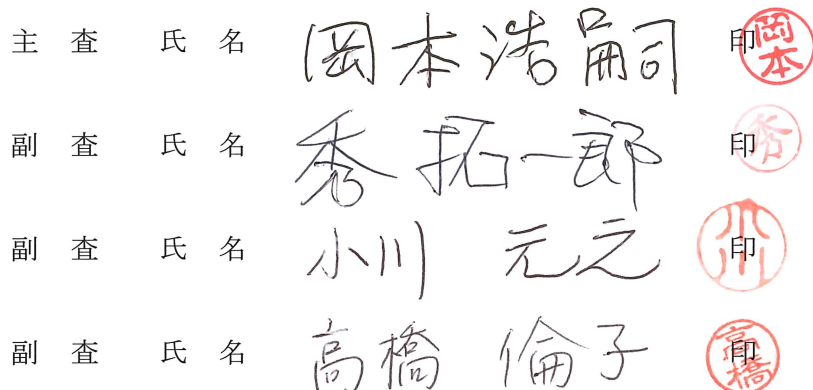 主 査 氏 名 岡本浩嗣 印 岡本
副 査 氏 名 秀 拓一郎 印 秀
副 査 氏 名 小川 元之 印 小川
副 査 氏 名 高橋 倫子 印 高橋